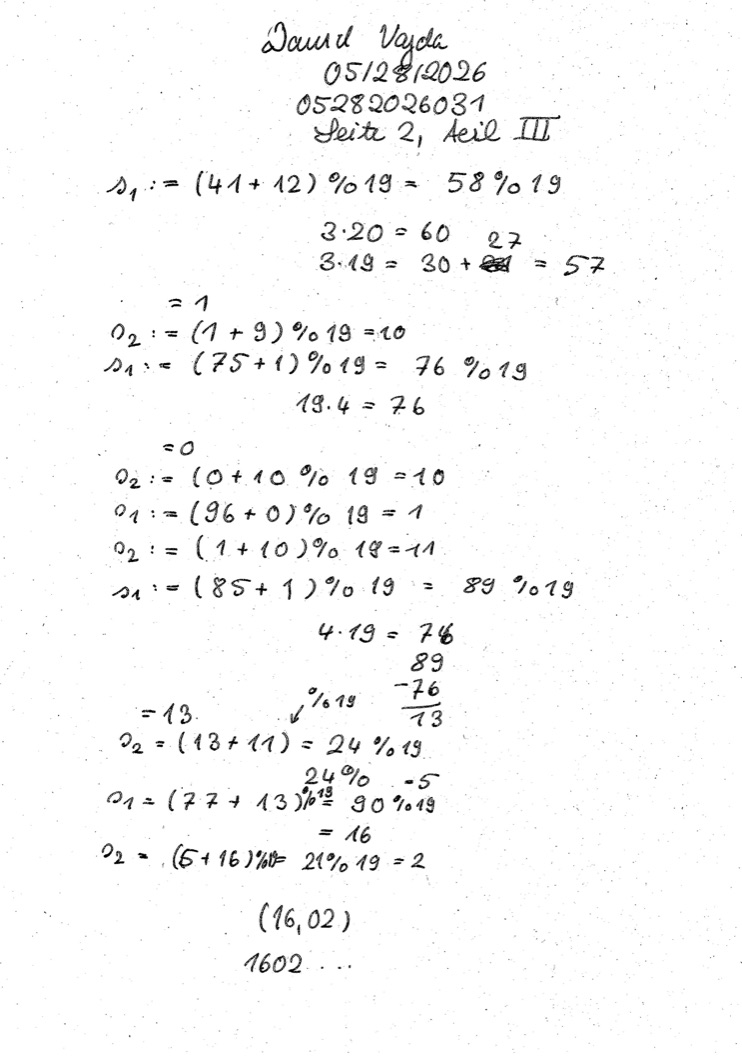 David Vajda
05/28/2026
05282026031
Seite 2, Teil III
s1 := (41 + 12) % 19 = 58 % 19
3·20 = 60
27
3·19 = 30 + = 57
= 1
s2 := (1 + 9) % 19 = 10
s1 := (75 + 1) % 19 = 76 % 19
19·4 = 76
= 0
s2 := (0 + 10 % 19 = 10
s1 := (96 + 0) % 19 = 1
s2 := (1 + 10) % 19 = 11
s1 := (85 + 1) % 19 = 89 % 19
4·19 = 76
89
-76
13
% 19
= 13
s2 = (13 + 11) = 24 % 19
24 % - 5
s1 = (77 + 13) % 19 = 90 % 19
= 16
s2 = (5 + 16) % 19 = 21 % 19 = 2
(16,02)
1602 ....